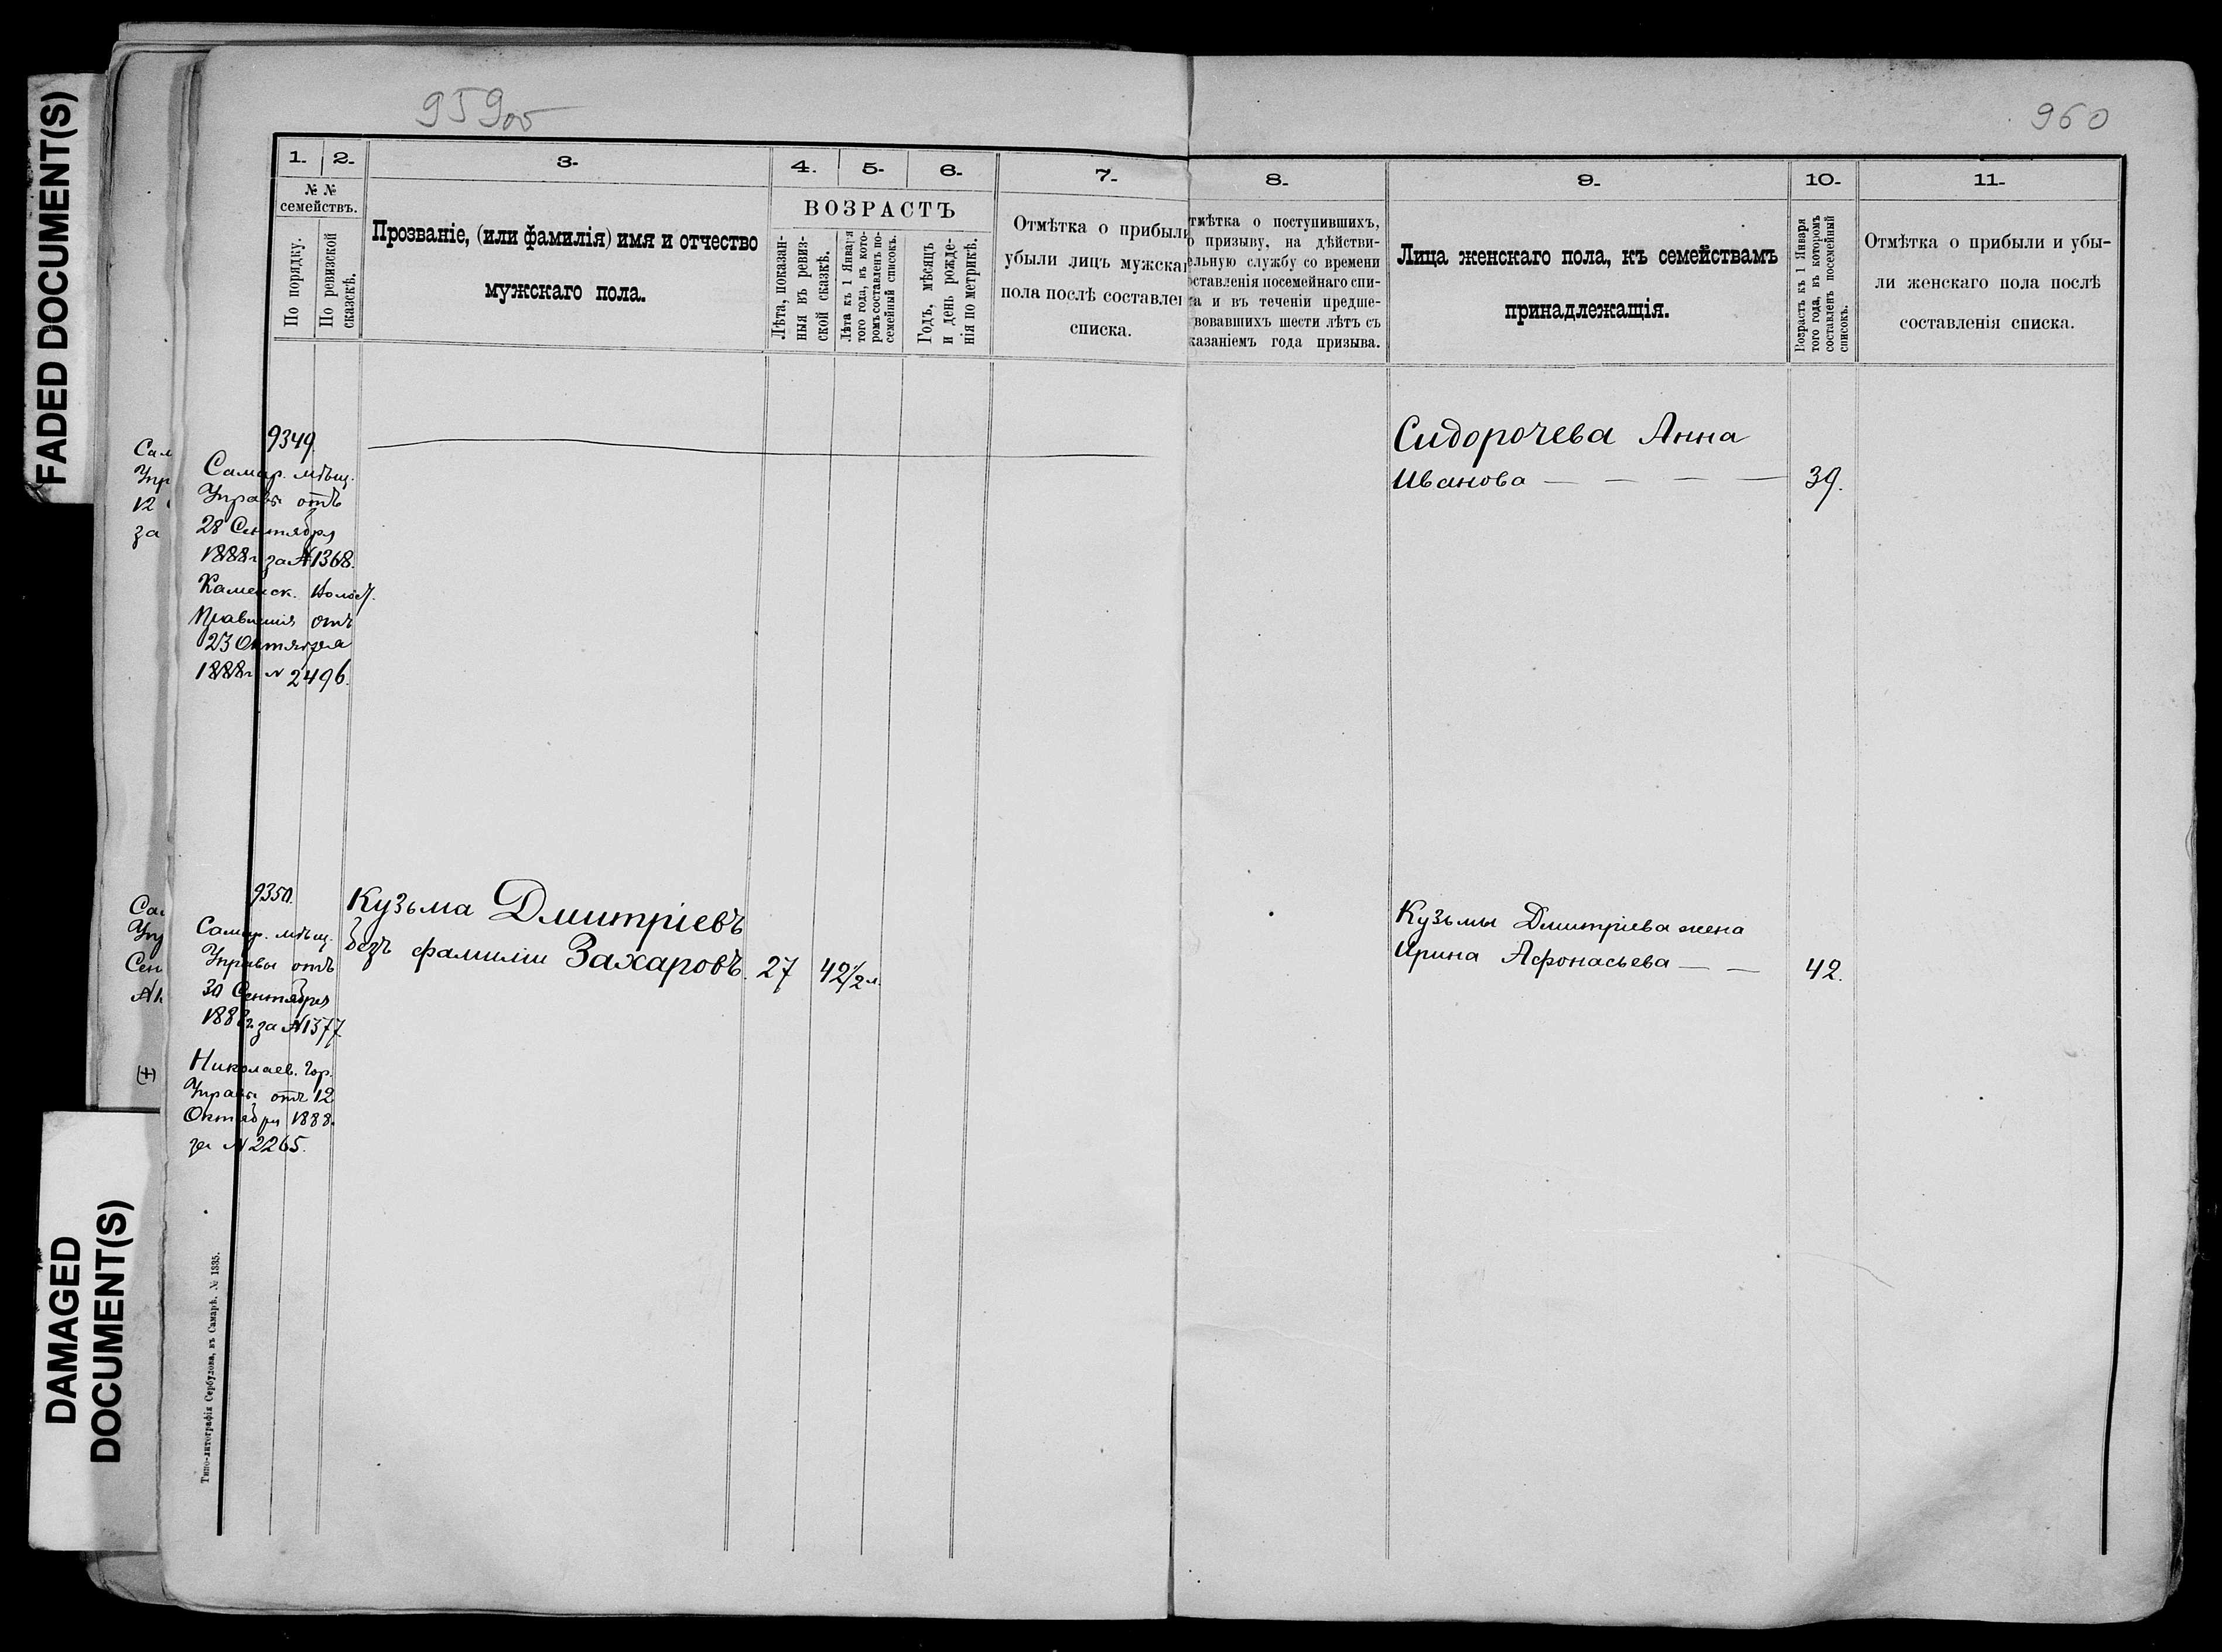 FADED DOCUMENT(S)
DAMAGED
DOCUMENT(S)
959об
960
1. 2. 3. 4. 5. 6. 7.
№ №
семействъ.
По порядку.
По ревизской
сказкѣ.
Прозваніе, (или фамилія) имя и отчество
мужскаго пола.
ВОЗРАСТЪ
Лѣта, показан-
ныя въ ревиз-
ской сказкѣ.
Лѣта къ 1 Января
того года, въ кото-
ромъ составленъ по-
семейный списокъ.
Годъ, мѣсяцъ
и день рожде-
нія по метрикѣ.
Отмѣтка о прибыли
убыли лицъ мужска
пола послѣ составле
списка.
8. 9. 10. 11.
тмѣтка о поступившихъ,
о призыву, на дѣйстви-
ельную службу со времени
оставленія посемейнаго спи-
ка и въ теченіи предше-
вовавшихъ шести лѣтъ съ
казаніемъ года призыва.
Лица женскаго пола, къ семействамъ
принадлежащія.
Возрастъ къ 1 Января
того года, въ которомъ
составленъ посемейный
списокъ.
Отмѣтка о прибыли и убы-
ли женскаго пола послѣ
составленія списка.
9349.
Самар. мѣщ.
Управы отъ
28 Сентября
1888г за №1368.
Каменск. Волост.
Правленія отъ
23 Октября
1888г № 2496.
Сидорочева Анна
Иванова — — — — 39.
9350.
Самар. мѣщ.
Управы отъ
30 Сентября
1888г. за №1377
Николаев. Гор.
Управы отъ 12
Октября 1888.
за №2265.
Кузьма Дмитріевъ
безъ фамиліи Захаровъ. 27 42½ л.
Кузьмы Дмитріева жена
Ирина Афонасьева — — 42.
Сам
Упр
12
за
Сам
Упр
Сен
№
(+)
Типо-литографія Сербулова, въ Самарѣ. № 1335.